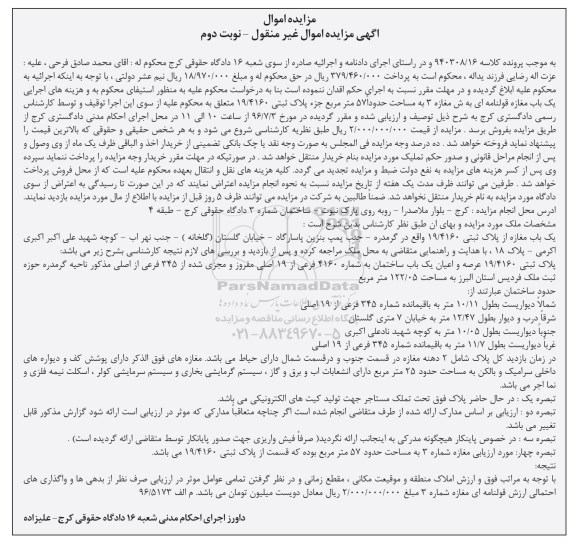 مزایده اموال
آگهی مزایده اموال غیر منقول – نوبت دوم
به موجب پرونده کلاسه ۹۴۰۳۰۸/۱۶ و در راستای اجرای دادنامه و اجرائیه صادره از سوی شعبه ۱۶ دادگاه حقوقی کرج محکوم له : اقای محمد صادق فرحی ، علیه :
عزت اله رضایی فرزند یداله ، محکوم است به پرداخت ۳۷۹/۴۶۰/۰۰۰ ریال در حق محکوم له و مبلغ ۱۸/۹۷۰/۰۰۰ ریال نیم عشر دولتی ، با توجه به اینکه اجرائیه به
محکوم علیه ابلاغ گردیده و در مهلت مقرر نسبت به اجرای حکم اقدان ننموده است بنا به درخواست محکوم علیه به منظور استیفای محکوم به و هزینه های اجرایی
یک باب مغازه قولنامه ای به ش مغازه ۳ به مساحت حدودا۵۷ متر مربع جزء پلاک ثبتی ۱۹/۴۱۶۰ متعلق به محکوم علیه از سوی این اجرا توقیف و توسط کارشناس
رسمی دادگستری کرج به شرح ذیل توصیف و ارزیابی شده و مقرر گردیده در مورخ ۹۶/۷/۳ از ساعت ۱۰ الی ۱۱ در محل اجرای احکام مدنی دادگستری کرج از
طریق مزایده بفروش برسد . مزایده از قیمت ۲/۰۰۰/۰۰۰/۰۰۰ ریال طبق نظریه کارشناسی شروع می شود و به هر شخص حقیقی و حقوقی که بالاترین قیمت را
پیشنهاد نماید فروخته خواهد شد . ده درصد وجه مزایده فی المجلس به صورت وجه نقد یا چک بانکی تضمینی از خریدار اخذ و الباقی ظرف یک ماه از وی وصول و
پس از انجام مراحل قانونی و صدور حکم تملیک مورد مزایده بنام خریدار منتقل خواهد شد . در صورتیکه در مهلت مقرر خریدار وجه مزایده را پرداخت ننماید سپرده
وی پس از کسر هزینه های مزایده به نفع دولت ضبط و مزایده تجدید می گردد. کلیه هزینه های نقل و انتقال بعهده محکوم علیه است که از محل فروش پرداخت
خواهد شد . طرفین می توانند ظرف مدت یک هفته از تاریخ مزایده نسبت به نحوه انجام مزایده اعتراض نمایند که در این صورت تا رسیدگی به اعتراض از سوی
دادگاه مورد مزایده به نام خریدار منتقل نخواهد شد. ضمنا طالبین به شرکت در مزایده می توانند ظرف ۵ روز قبل از مزایده با اطلاع از مال مورد مزایده بازدید نمایند.
ادرس محل انجام مزایده : کرج – بلوار ملاصدرا – روبه روی پارک نبوت – ساختمان شماره ۲ دادگاه حقوقی کرج – طبقه ۴
مشخصات ملک مورد مزایده و بهای ان طبق نظر کارشناس بدین شرح است :
یک باب مغازه از پلاک ثبتی ۱۹/۴۱۶۰ واقع در گرمدره – جنب پمپ بنزین پاسارگاد – خیابان گلستان (گلخانه ) – جنب نهر اب – کوچه شهید علی اکبر اکبری
اکرمی – پلاک ۱۸ ، با هدایت و راهنمایی متقاضی به محل ملک مراجعه کرده و پس از بازدید و بررسی های لازم نتیجه کارشناسی بشرح زیر می باشد:
پلاک ثبتی ۱۹/۴۱۶۰ عرصه و اعیان یک باب ساختمان به شماره ۴۱۶۰ فرعی از ۱۹ اصلی مفروز و مجزی شده از ۳۴۵ فرعی از اصلی مذکور ناحیه گرمدره حوزه
ثبت ملک فردیس استان البرز به مساحت ۱۲۲/۰۵ متر مربع
حدود ساختمان عبارتند از:
شمالاً دیواریست بطول ۱۰/۱۱ متر به باقیمانده شماره ۳۴۵ فرعی از ۱۹ اصلی
شرقاً درب و دیوار بطول ۱۲/۴۷ متر به خیابان ۷ متری گلستان
جنوباً دیواریست بطول ۱۰/۰۵ متر به کوچه شهید نادعلی اکبری
غربا دیواریست بطول ۱۱/۷ متر به باقیمانده شماره ۳۴۵ فرعی از ۱۹ اصلی
در زمان بازدید کل پلاک شامل ۲ دهنه مغازه در قسمت جنوب و درقسمت شمال دارای حیاط می باشد. مغازه های فوق الذکر دارای پوشش کف و دیواره های
داخلی سرامیک و بالکن به مساحت حدود ۲۵ متر مربع دارای انشعابات اب و برق و گاز ، سیستم گرمایشی بخاری و سیستم سرمایشی کولر ، اسکلت نیمه فلزی و
نما اجر می باشد.
تبصره یک : در حال حاضر پلاک فوق تحت تملک مستاجر جهت تولید کیت های الکترونیکی می باشد.
تبصره دو : ارزیابی بر اساس مدارک ارائه شده از طرف متقاضی انجام شده است اگر چناچه متعاقباً مدارکی که موثر در ارزیابی است ارائه شود گزارش مذکور قابل
تغییر می باشد.
تبصره سه : در خصوص پاینکار هیچگونه مدرکی به اینجانب ارائه نگردید( صرفاً فیش واریزی جهت صدور پایانکار توسط متقاضی ارائه گردیده است) .
تبصره چهار: مورد ارزیابی مغازه شماره ۳ به مساحت حدود ۵۷ متر مربع بوده که قسمت از پلاک ثبتی ۱۹/۴۱۶۰ می باشد.
نتیجه:
با توجه به مراتب فوق و ارزش املاک منطقه و موقیعت مکانی ، مقطع زمانی و در نظر گرفتن تمامی عوامل موثر در ارزیابی صرف نظر از بدهی ها و واگذاری های
احتمالی ارزش قولنامه ای مغازه شماره ۳ مبلغ ۲/۰۰۰/۰۰۰/۰۰۰ ریال معادل دویست میلیون تومان می باشد. م الف ۹۶/۵۱۷۳
داورز اجرای احکام مدنی شعبه ۱۶ دادگاه حقوقی کرج – علیزاده
ParsNamadData
۰۲۱-۸۸۳۴۹۶۷۰-۵